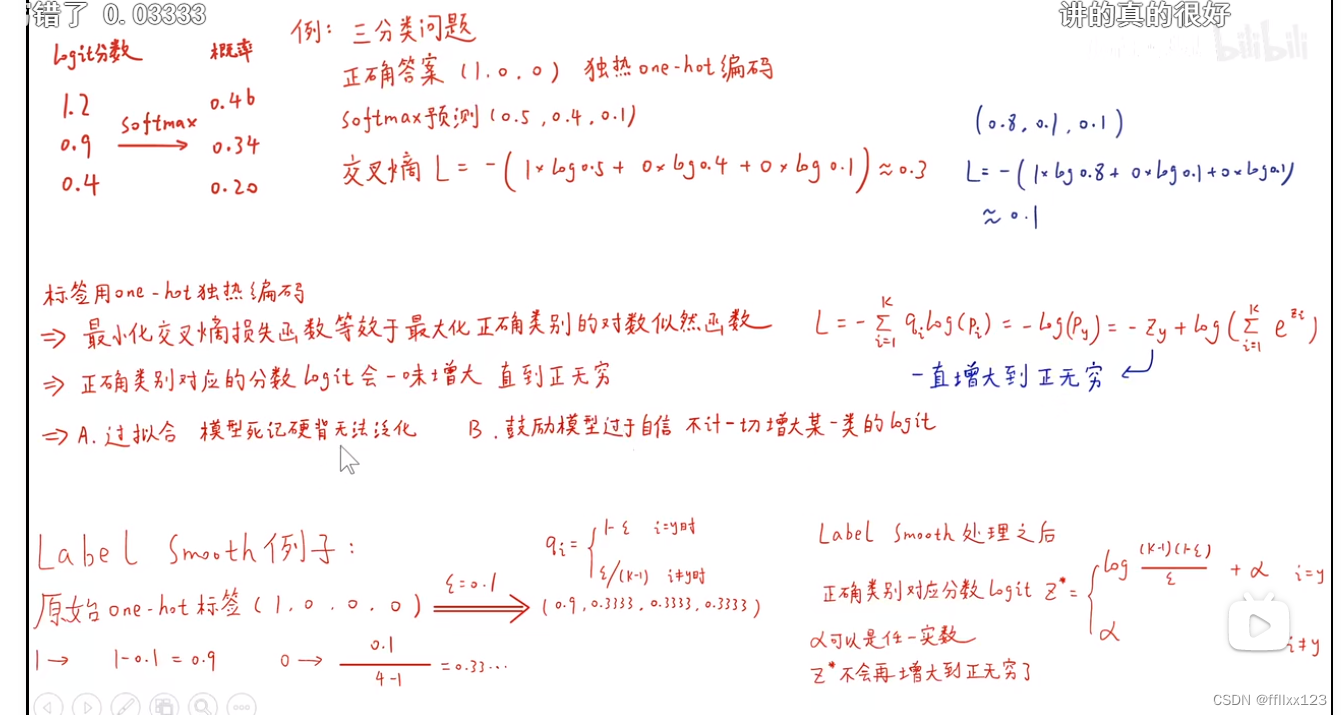 错了 0.03333
讲的真的很好
bilibili
logit分数 概率
1.2 0.46
softmax
0.9 0.34
0.4 0.20
例: 三分类问题
正确答案 (1.0.0) 独热one-hot编码
softmax预测 (0.5,0.4,0.1)
交叉熵 L = -(1×log0.5+ 0×log0.4 + 0×log0.1) ≈ 0.3
(0.8,0.1,0.1)
L = -(1×log0.8+ 0×log0.1+0×log0.1)
≈ 0.1
标签用one-hot独热编码
⇒ 最小化交叉熵损失函数等效于最大化正确类别的对数似然函数
L = -∑_{i=1}^{K} q_i log(p_i) = -log(p_y) = -z_y + log(∑_{i=1}^{K} e^{z_i})
⇒ 正确类别对应的分数logit会一味增大 直到正无穷
一直增大到正无穷
⇒ A. 过拟合 模型死记硬背无法泛化 B. 鼓励模型过于自信 不计一切增大某一类的logit
Label Smooth例子:
q_i = { 1-ε i=y时
ε/(K-1) i≠y时
原始one-hot标签 (1.0.0.0) ε=0.1 ⇒ (0.9,0.3333,0.3333,0.3333)
1→ 1-0.1=0.9 0→ 0.1/(4-1) =0.33···
Label Smooth处理之后
正确类别对应分数logit z* = { log (K-1)(1-ε)/ε + α i=y
α i≠y
α可以是任一实数
z*不会再增大到正无穷了
CSDN @ffllxx123